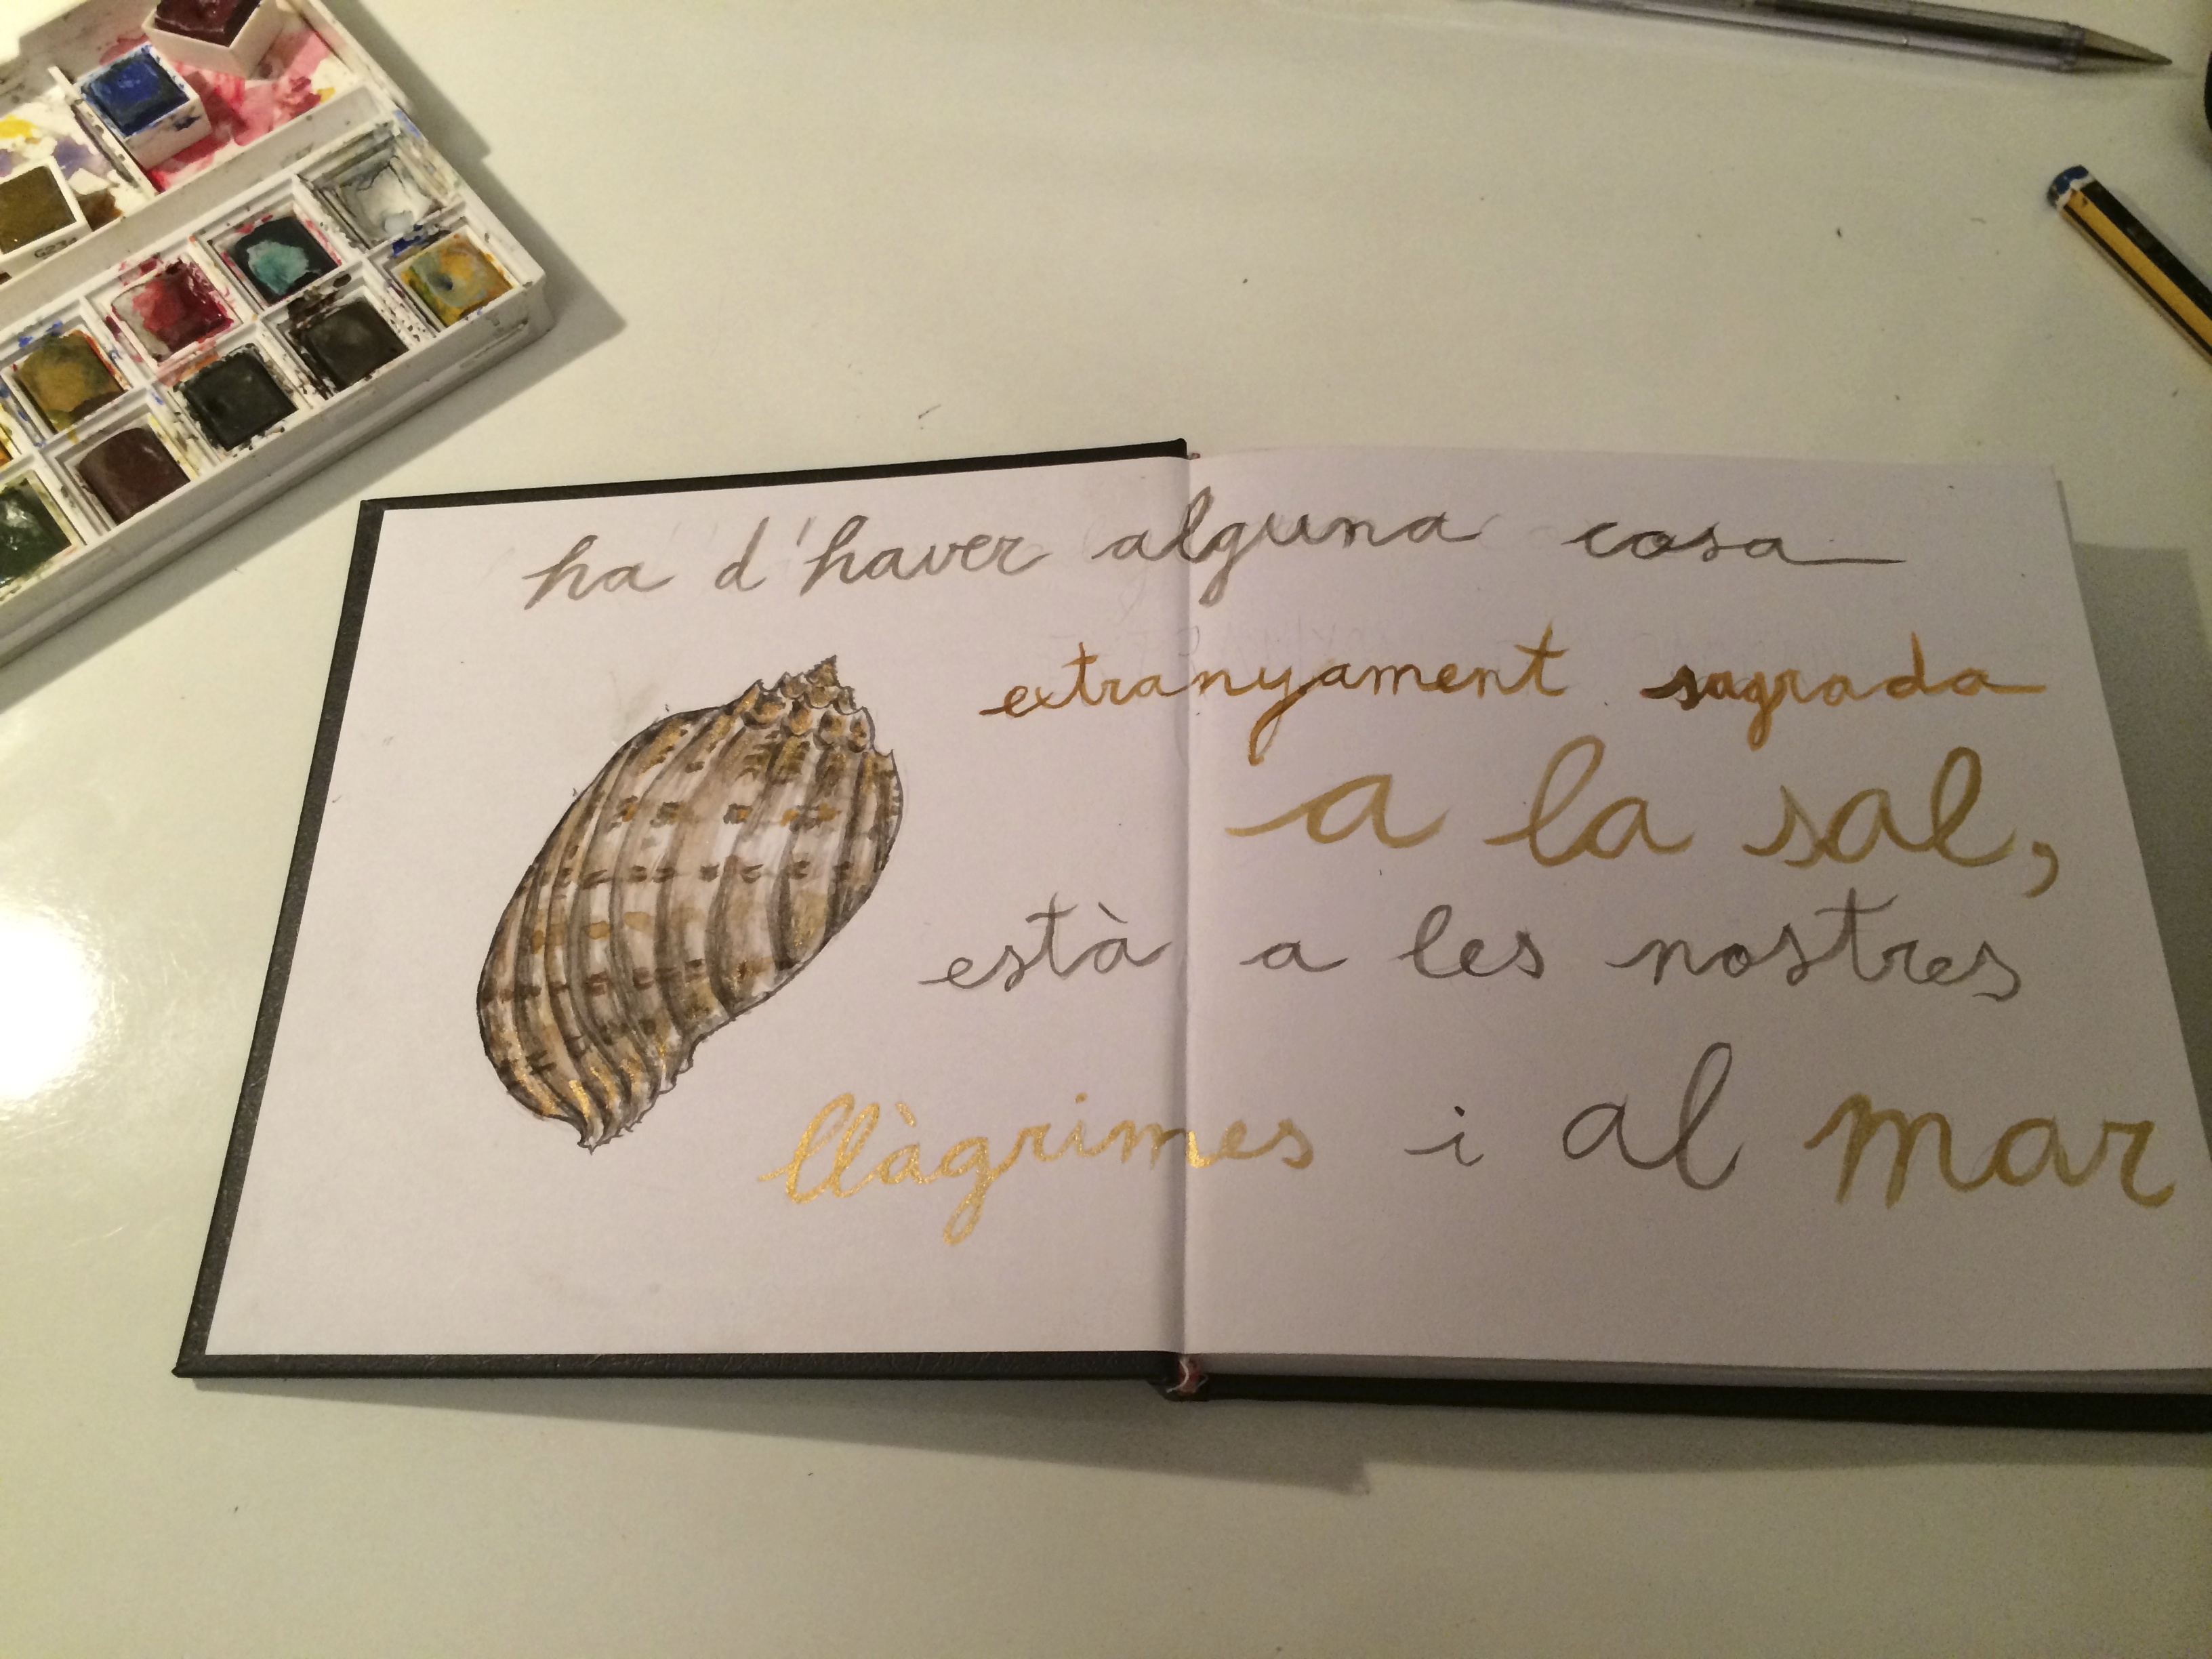 ha d'haver alguna cosa
extranyament sagrada
a la sal,
està a les nostres
llàgrimes i al mar